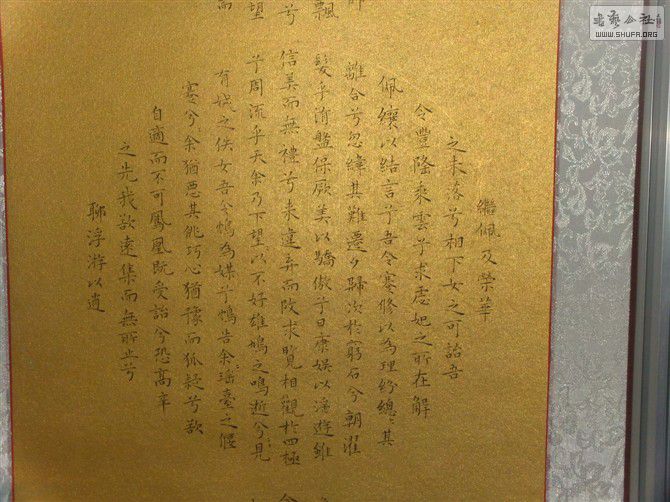 書藝公社
WWW.SHUFA.ORG
飄
兮
望
而
繼佩及榮華
之未落兮相下女之可詒吾
令豐隆乘雲兮求虙妃之所在解
佩纕以結言兮吾令蹇修以為理紛總々其
離合兮忽緯其難遷夕歸次於窮石兮朝濯
髮乎洧盤保厥美以驕傲兮日康娛以淫遊雖
信美而無禮兮來違弃而改求覽相觀於四極
兮周流乎天余乃下望以不好雄鳩之鳴逝兮見
有娀之佚女吾令鴆為媒兮鴆告余瑤臺之偃
蹇兮余猶惡其佻巧心猶豫而狐疑兮欲
自適而不可鳳凰既受詒兮恐高辛
之先我欲遠集而無所止兮
聊浮游以逍